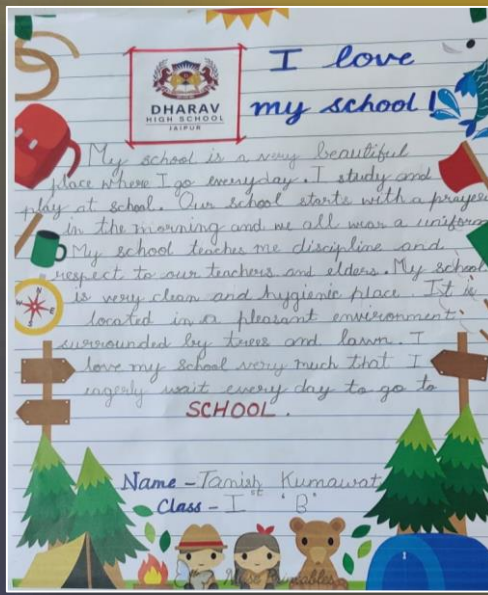 DHARAV
HIGH SCHOOL
JAIPUR
I love
my school!
My school is a very beautiful
place where I go everyday. I study and
play at school. Our school starts with a prayer
in the morning and we all wear a uniform
My school teaches me discipline and
respect to our teachers and elders. My school
is very clean and hygienic place. It is
located in a pleasant environment
surrounded by trees and lawn. I
love my school very much that I
eagerly wait every day to go to
SCHOOL.
Name - Tanish Kumawat
Class - Ist 'B'
Printables